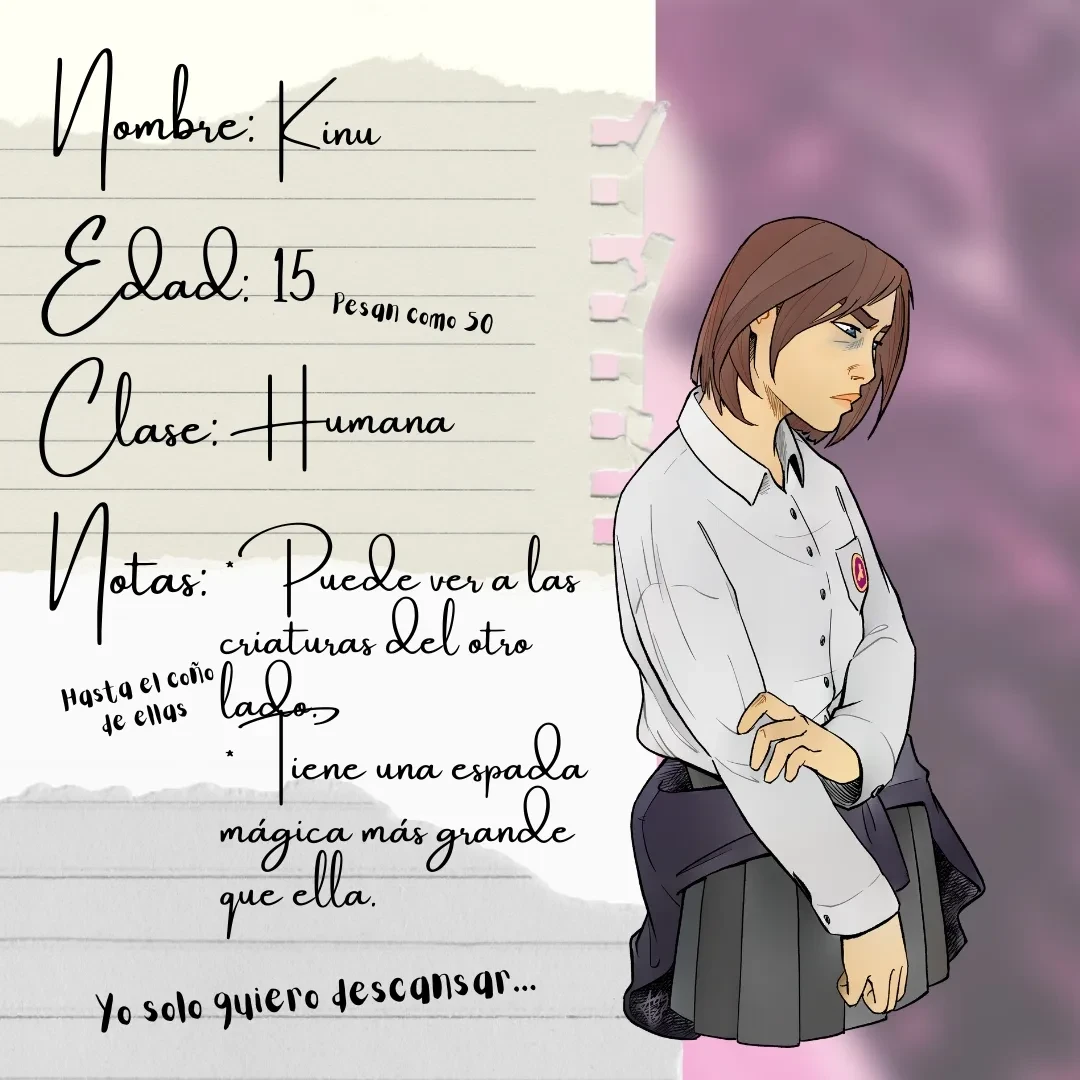 Nombre: Kinu
Edad: 15
Pesan como 50
Clase: Humana
Notas: * Puede ver a las
criaturas del otro
lado.
Hasta el coño
de ellas
* Tiene una espada
mágica más grande
que ella.
Yo solo quiero descansar...